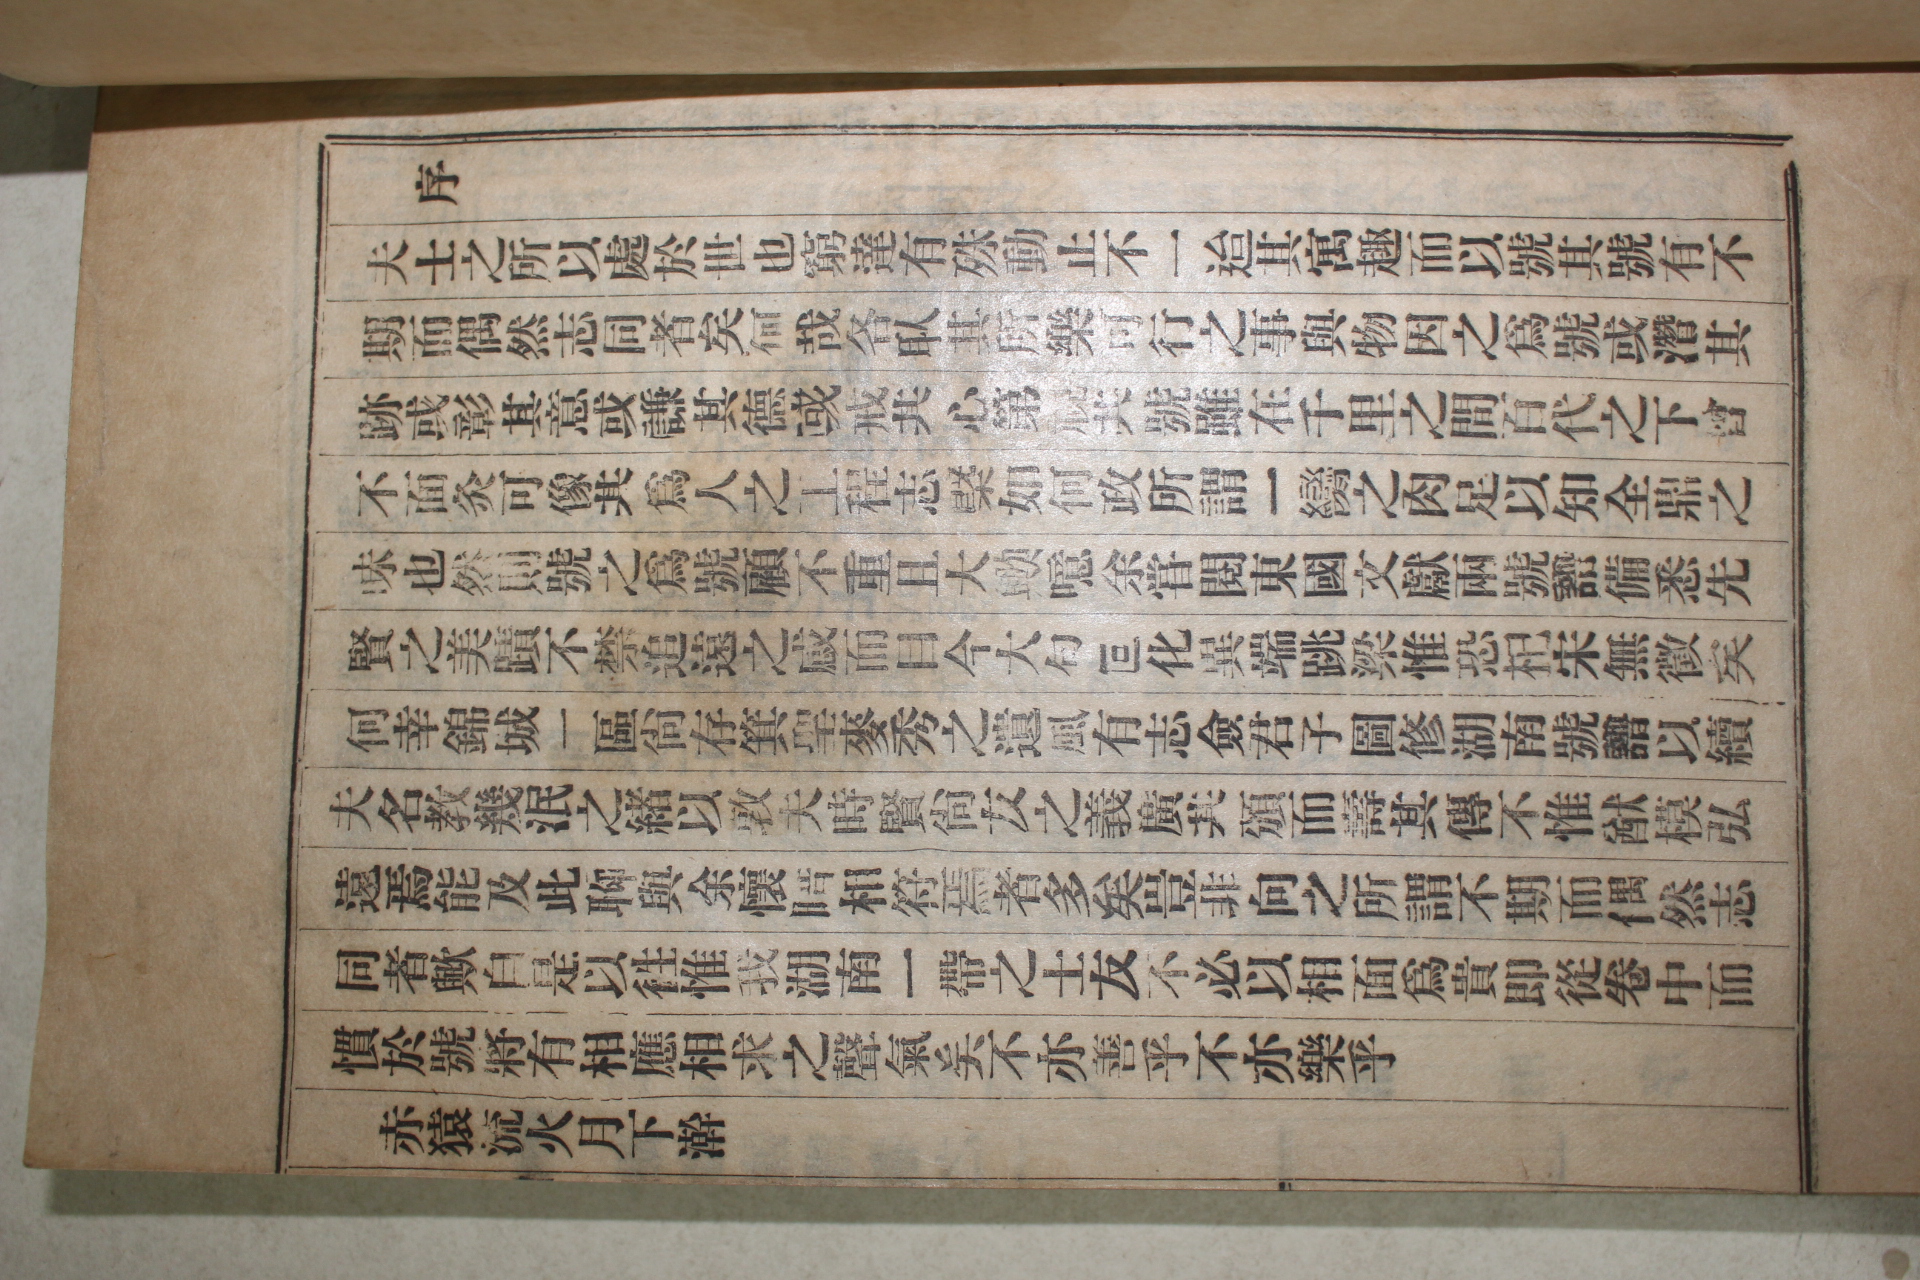 序
夫士之所以處於世也窮達有殊動止不一迨其寓趣而以號其號有不
期而偶然志同者矣何哉各臥其所樂可行之事與物因之爲號或潛其
跡或彰其意或謙其德或戒其心第使其號雖在千里之間百代之下曾
不面炙可像其爲人之工程志槩如何政所謂一臠之肉足以知全鼎之
味也然則號之爲號顧不重且大歟噫余嘗閱東國文獻兩號譜備悉先
賢之美蹟不禁追遠之感而目今大勾回化異端跳梁惟恐杞宋無徵矣
何幸錦城一區尙存箕聖麥秀之遺風有志僉君子圖修湖南號譜以續
夫名敎幾泯之緖以敦夫時賢尙友之義廣其頒而壽其傳不惟猷模弘
遠焉能及此聊與余懷暗相符焉者多矣豈非向之所謂不期而偶然志
同者歟自是以往惟我湖南一帶之士友不必以相面爲貴卽從卷中而
慣於號將有相應相求之聲氣矣不亦善乎不亦樂乎
赤猿流火月下澣